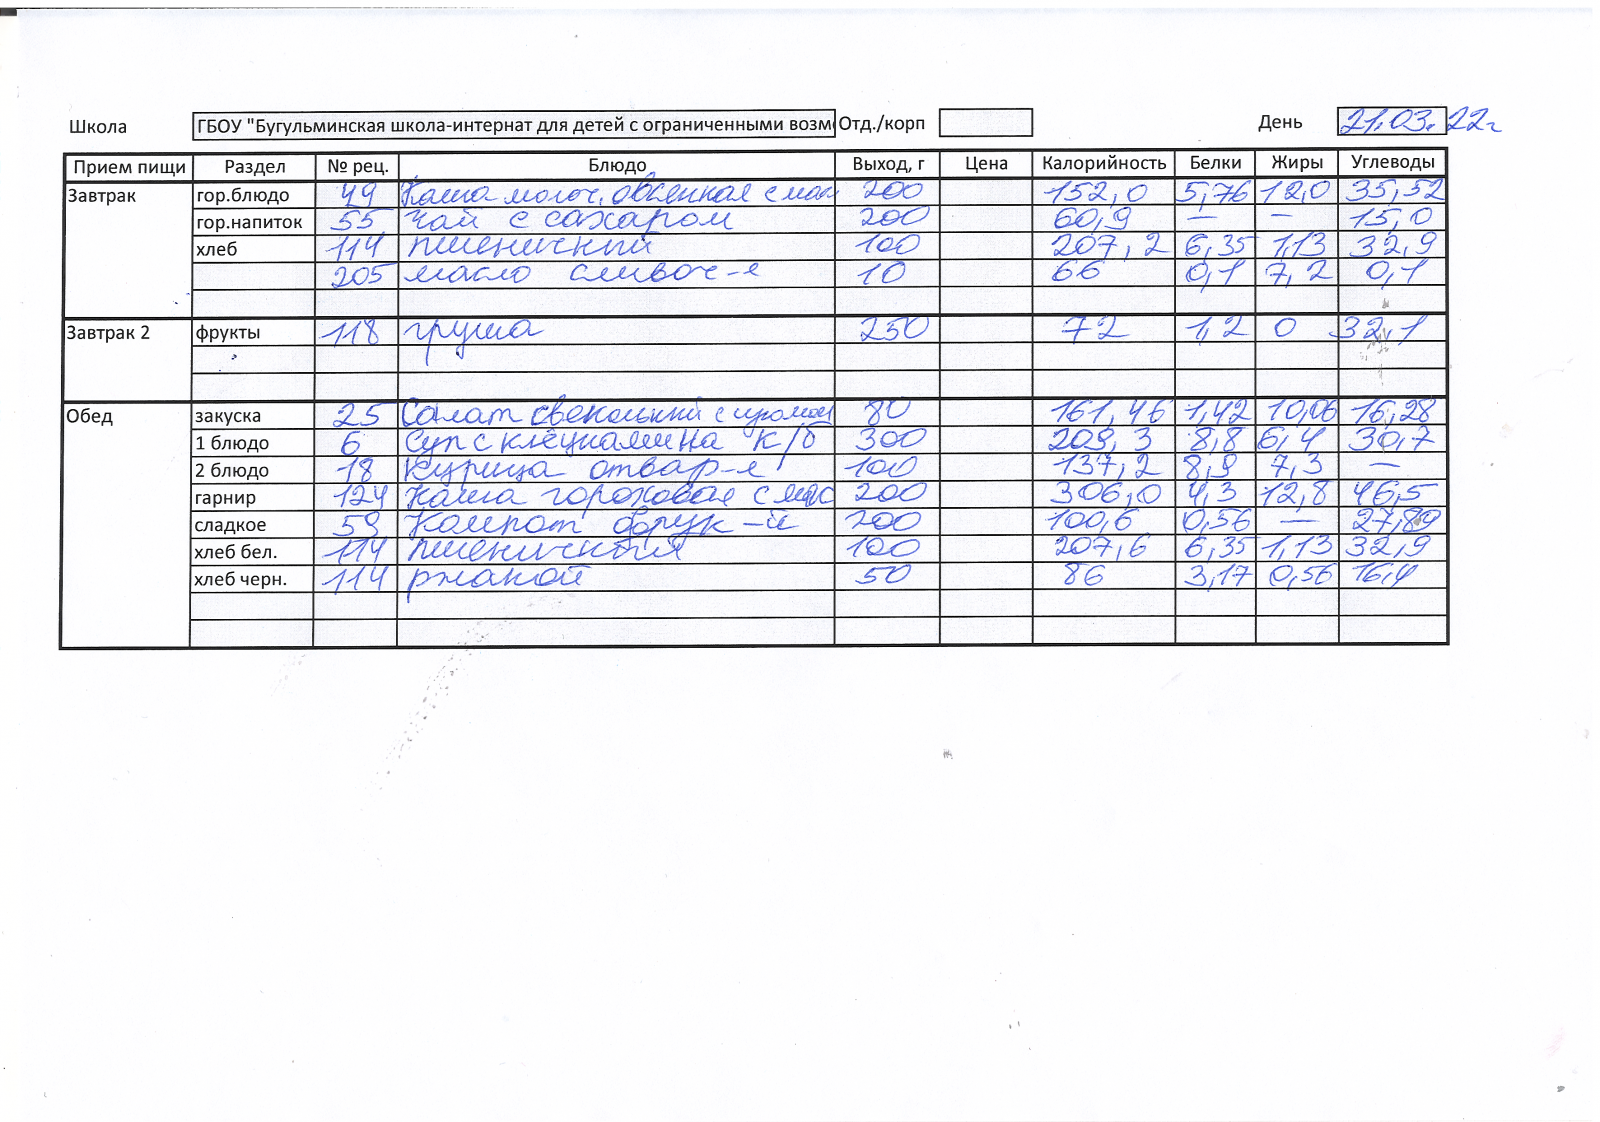 Школа ГБОУ "Бугульминская школа-интернат для детей с ограниченными возм Отд./корп День 21.03.22г
Прием пищи Раздел № рец. Блюдо Выход, г Цена Калорийность Белки Жиры Углеводы
Завтрак гор.блюдо 49 Каша молоч. овсянная с мас 200 152,0 5,76 12,0 35,52
гор.напиток 55 Чай с сахаром 200 60,9 — — 15,0
хлеб 114 пшеничный 100 207,2 6,35 1,13 32,9
205 масло сливоч-е 10 66 0,1 7,2 0,1
Завтрак 2 фрукты 118 груша 250 72 1,2 0 32,1
Обед закуска 25 Салат свекольный с 80 161,46 1,42 10,06 16,28
1 блюдо 6 Суп с клёцками на к/б 300 209,3 8,8 6,4 30,7
2 блюдо 18 Курица отвар-я 100 137,2 8,9 7,3 —
гарнир 124 Каша гороховая с мас 200 306,0 4,3 12,8 46,5
сладкое 59 Компот фрук-й 200 100,6 0,56 — 27,89
хлеб бел. 114 пшеничный 100 207,6 6,35 1,13 32,9
хлеб черн. 114 ржаной 50 86 3,17 0,56 16,4